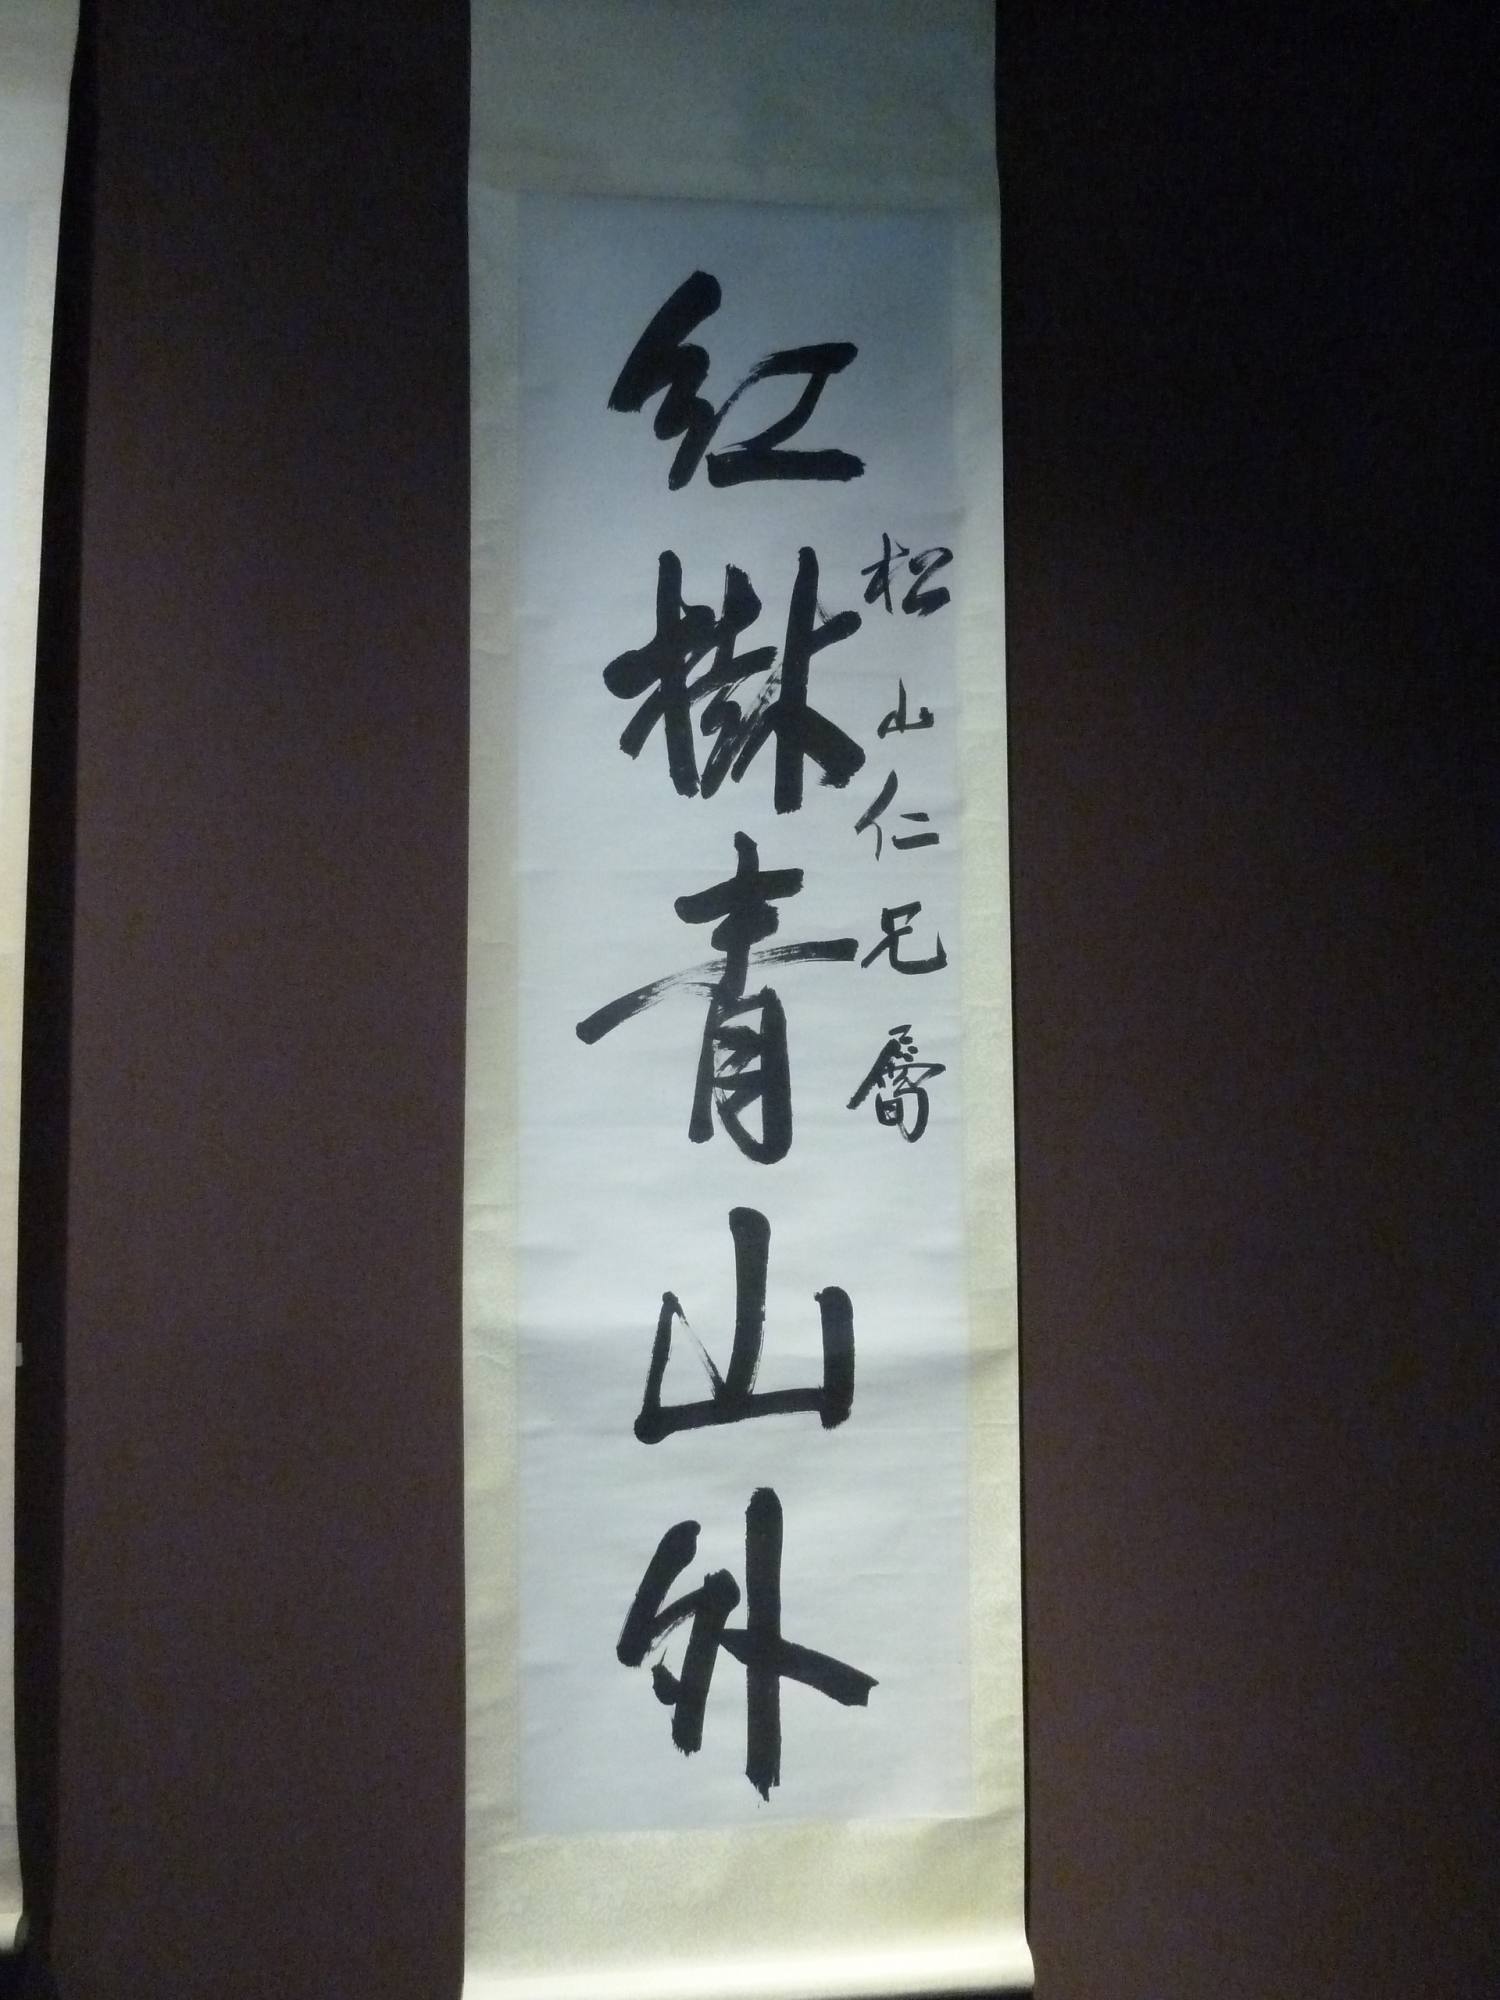 紅樹青山外
松山仁兄屬